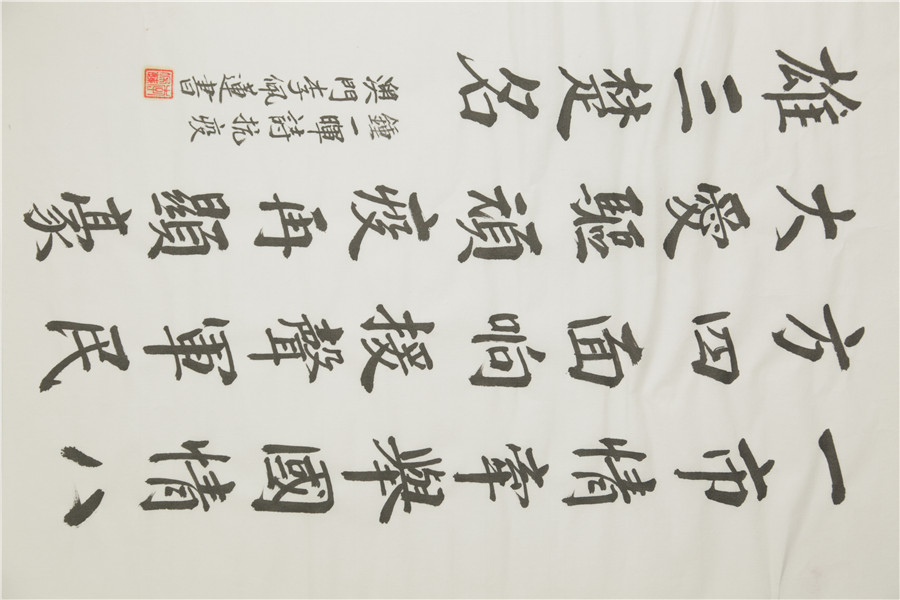 一市情牽舉國情八
方四面响援聲軍民
大愛驅頑疫再顯豪
雄三楚名
鍾一暉詩抗疫
澳門李佩蓮書